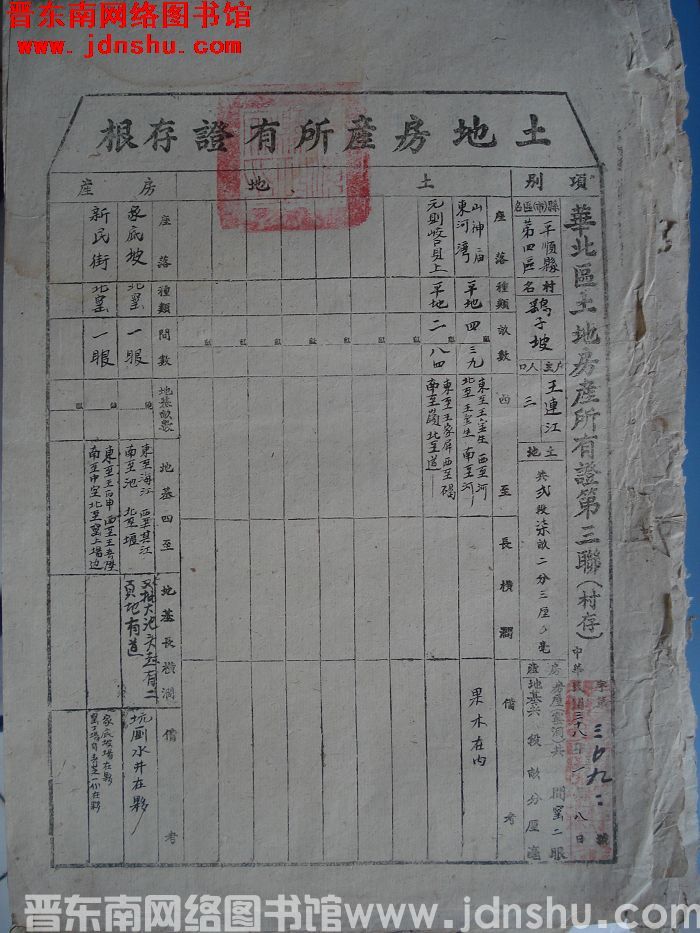 晋东南网络图书馆
www.jdnshu.com
土地房產所有證存根
華北區土地房產所有證第三聯(村存)
中華民國三十八年 一 八日
字第 三〇九 號
項別
縣(市)區名 平順縣第四區
村名 鷂子坡
戶主 王連江
人口 三
土地 共弍段柒畝二分三厘 毫
房產 房屋(窰洞)共 間窰二眼
地基共 段 畝 分 厘 毫
土地
座落
種類
畝數
四至
長橫濶
備考
山神廟東河灣
平地
四 三九
東至王金生 西至河
北至王金生 南至河
果木在內
平地
二 八四
東至王家屏 西至
南至 北至道
房產
座落
種類
間數
地基畝數
地基四至
地基長橫濶
備考
家底坡
北窰
一眼
東至海江 西至其江
南至池 北至堰
又批大池 有二
頁地有道
坑厠水井在夥
新民街
北窰
一眼
東至王 申 西至王
南至中空 北至窰上塄边
家底坡場在夥